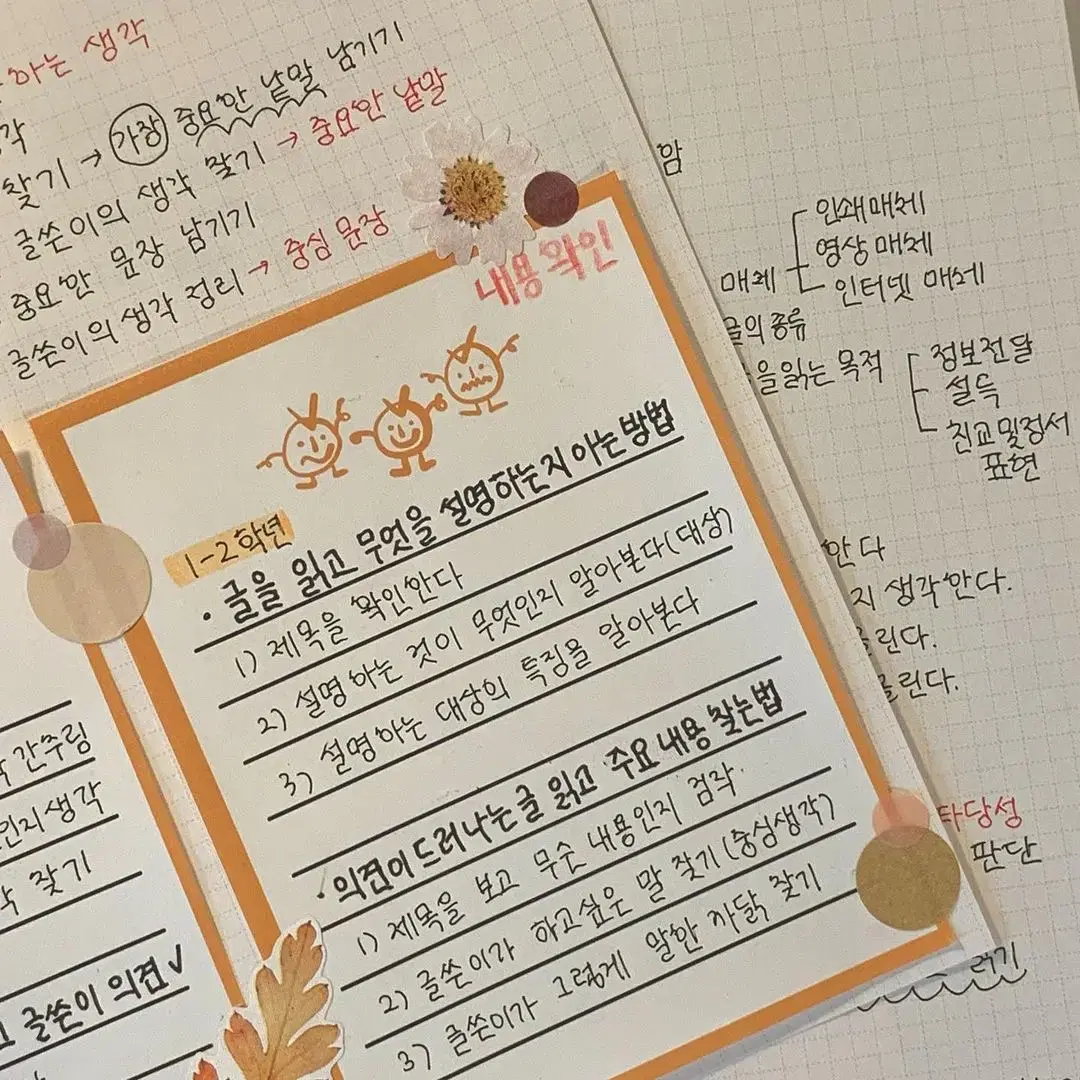 하는 생각
찾기 → 가장 중요한 낱말 남기기
글쓴이의 생각 찾기 → 중요한 낱말
중요한 문장 남기기
글쓴이의 생각 정리 → 중심 문장
내용확인
1-2학년
· 글을 읽고 무엇을 설명하는지 아는 방법
1) 제목을 확인한다
2) 설명하는 것이 무엇인지 알아본다(대상)
3) 설명하는 대상의 특징을 알아본다
· 의견이 드러나는 글 읽고 주요 내용 찾는법
1) 제목을 보고 무슨 내용인지 짐작
2) 글쓴이가 하고싶은 말 찾기(중심생각)
3) 글쓴이가 그렇게 말한 까닭 찾기
간추림
인지생각
찾기
글쓴이 의견 ✓
함
매체
인쇄매체
영상매체
인터넷 매체
글의 종류
을읽는 목적
정보전달
설득
친교및정서
표현
한다
지 생각한다.
린다.
린다.
타당성
판단